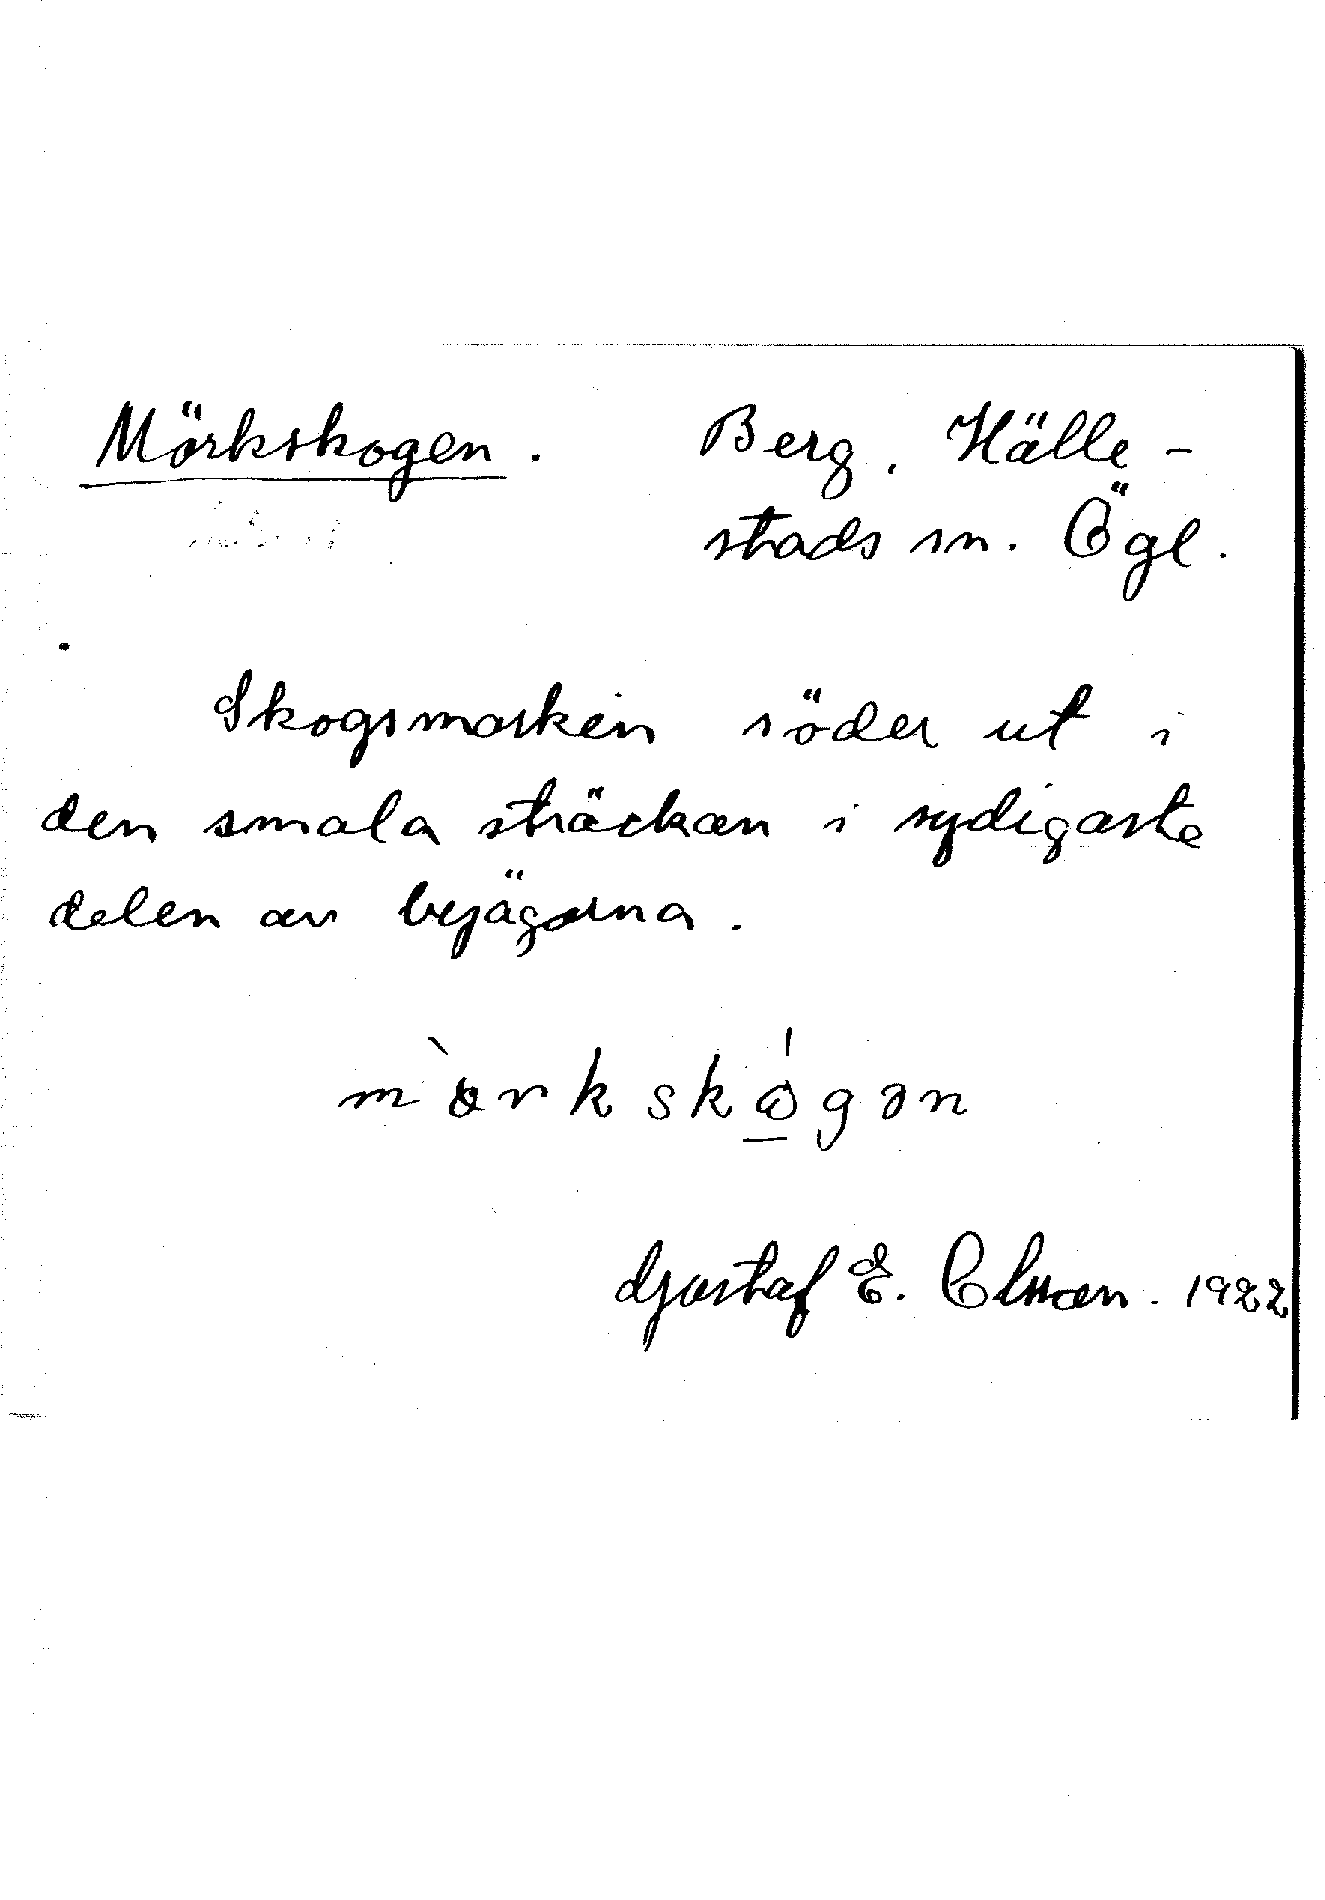 Mörkskogen. Berg, Hälle-
stads sn. Ögl.
Skogsmarken söder ut i
den smala sträckan i sydigaste
delen av beägorna.
Gustaf E. Clsson. 1922